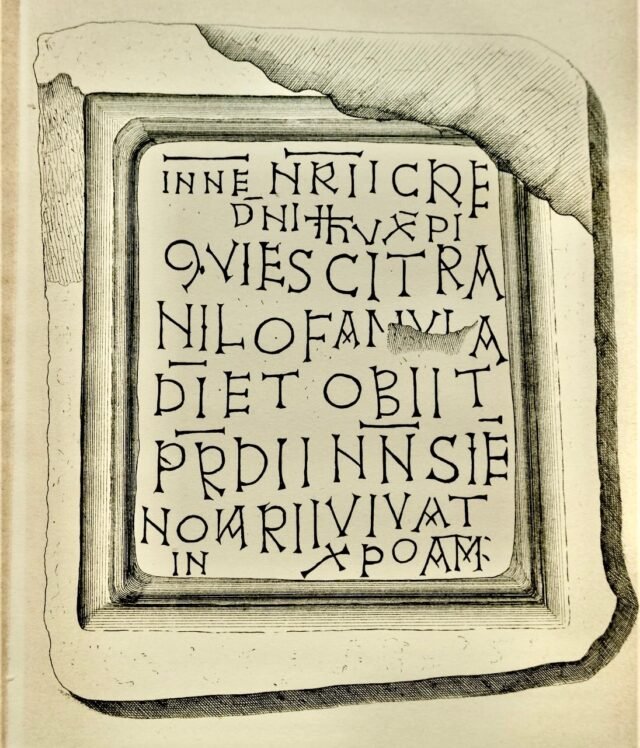 INNE NRIICRE
DNI IHV XPI
QVIESCIT RA
NILO FAMVLA
DI ET OBIIT
PRDII NN SIE
NONARII VIVAT
IN XPO AM